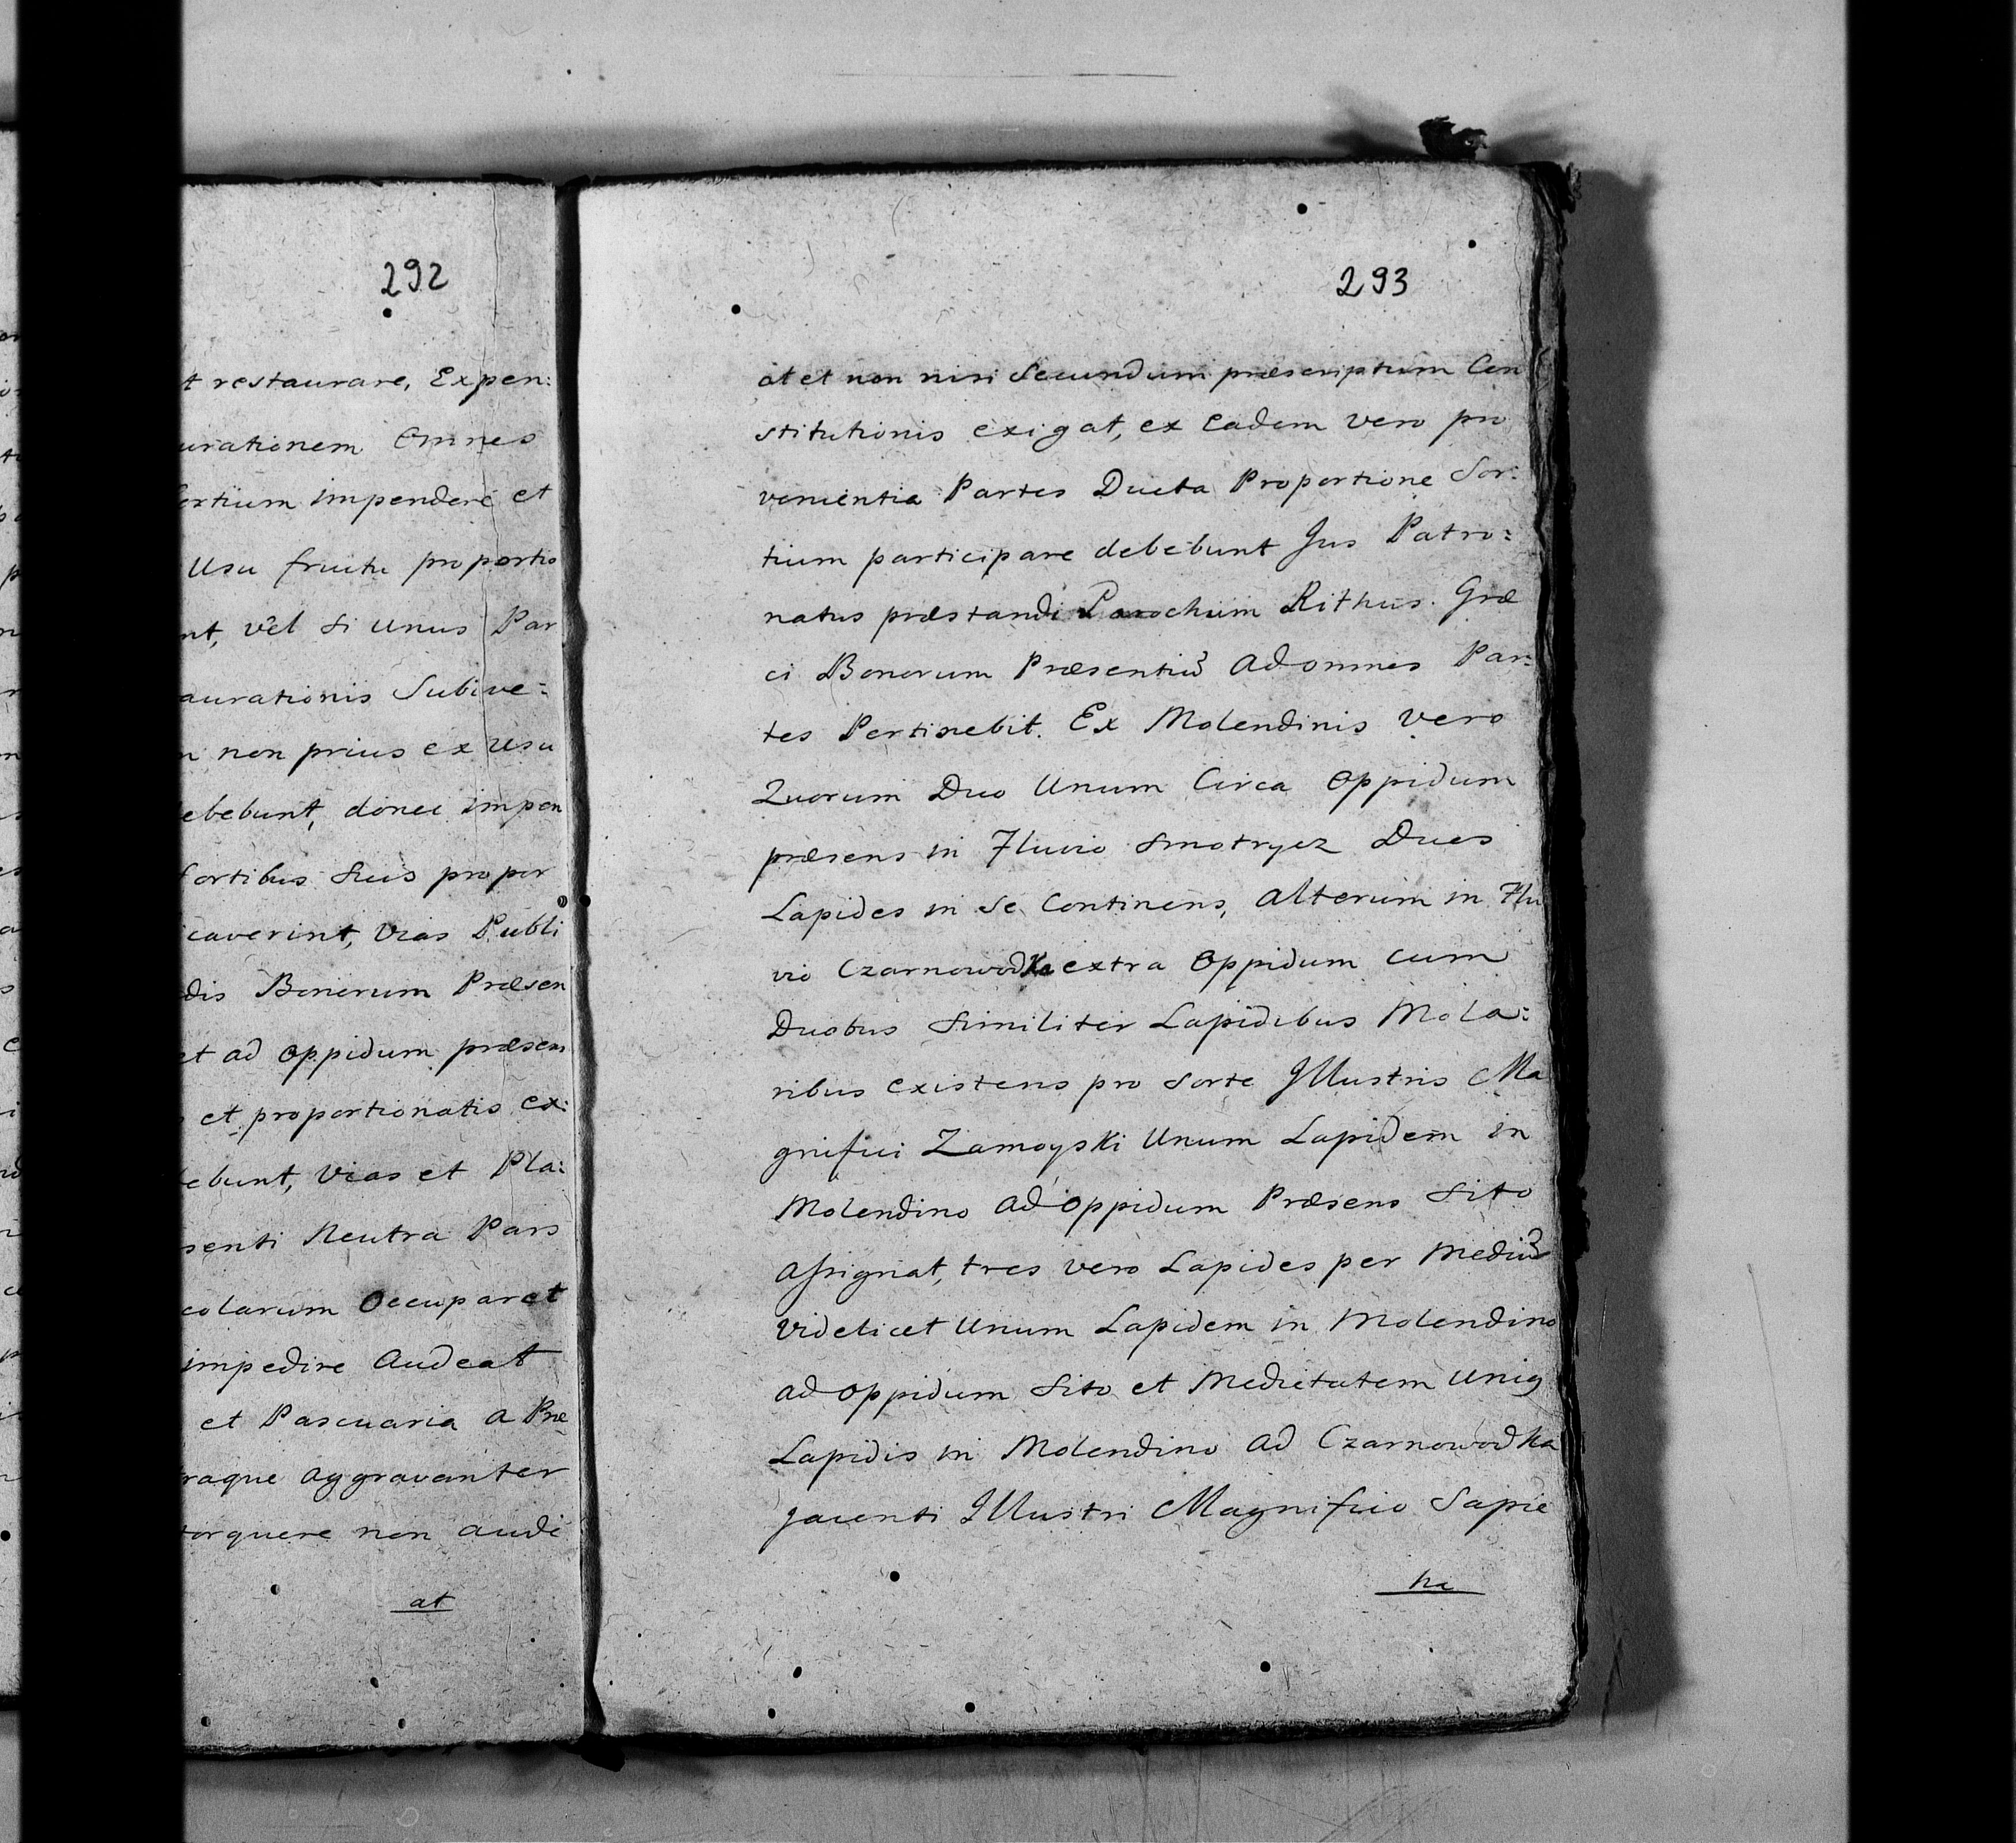 292
t restaurare, Expen:
urationem Omnes
ortium impendere et
Usu fructu proportio
nt, vel si unus Par
aurationis Subive:
n non prius ex usu
ebebunt, donec impen
fortibus suis propor
caverint, vias Publi
dis Bonorum Præsen
et ad oppidum præsens
et proportionatis ex:
ebunt, vias et Pla:
senti Neutra Pars
colarum Occuparet
impedire Audeat
et Pascuaria a Præ
raque aggravanter
torquere non audi
at
293
at et non nisi Secundum præscriptum Con
stitutionis exigat, ex Eadem vero pro
venientia Partes Ducta Proportione Sor:
tium participare debebunt Jus Patro:
natus præstandi Parochum Rithus. Græ
ci Bonorum Præsentiũ Ad omnes Par:
tes Pertinebit. Ex Molendinis vero
Quorum Duo Unum Circa Oppidum
præsens in Fluvio Smotrycz Dues
Lapides in se Continens, Alterum in Flu
vio Czarnowodka extra Oppidum cum
Duobus Similiter Lapidibus Mola:
ribus existens pro Sorte Illustris Ma
gnifici Zamoyski Unum Lapidem in
Molendino Ad oppidum Præsens Sito
Assignat, tres vero Lapides per Mediũ
Videlicet Unum Lapidem in Molendino
ad oppidum Sito et Medietatem Unig
Lapidis in Molendino Ad Czarnowodka
jacenti Illustri Magnifico Sapie
ha